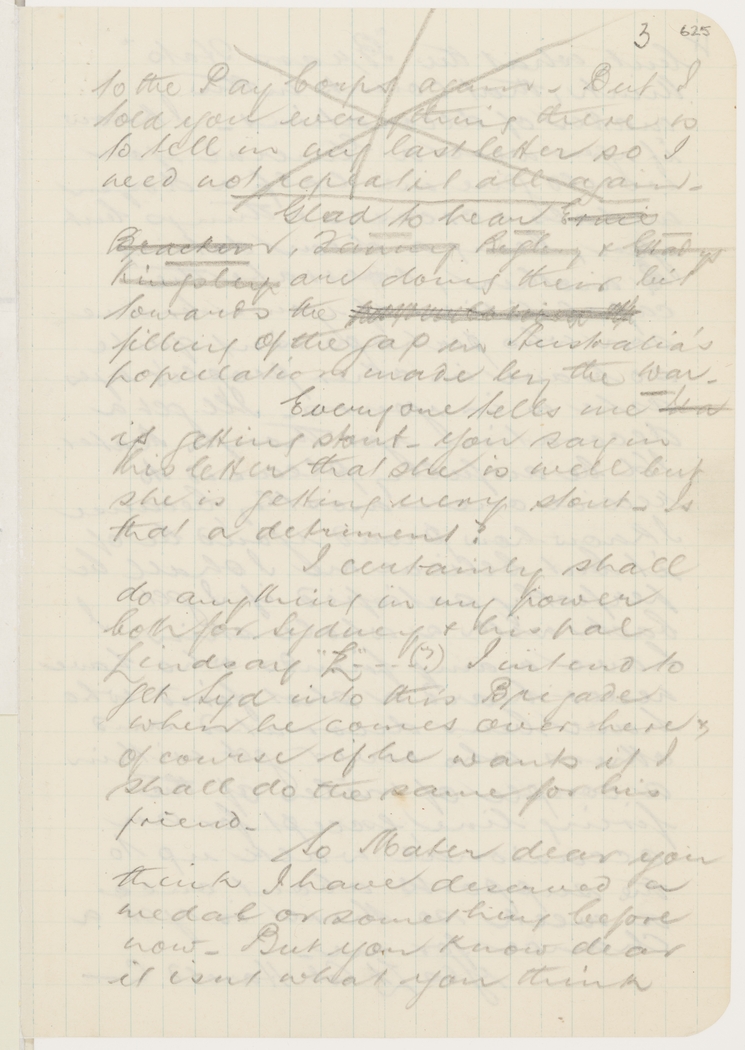 3 625
to the Pay Corps again - But I
told you everything there is
to tell in my last letter so I
need not repeat it all again -
Glad to hear Ernie
Bracker, Fanny Bigley & Gladys
Kingsley are doing their bit
towards the
filling of the gap in Australia's
population made by the war -
Everyone tells me
is getting stout - you say in
this letter that she is well but
she is getting very stout - Is
that a detriment?
I certainly shall
do anything in my power
both for Sydney & his pal
Lindsay "L" - - - (?) I intend to
get Syd into this Brigade
when he comes over here &
of course if he wants it I
shall do the same for his
friend -
So Mater dear you
think I have deserved a
medal or something before
now - But you know dear
it isnt what you think